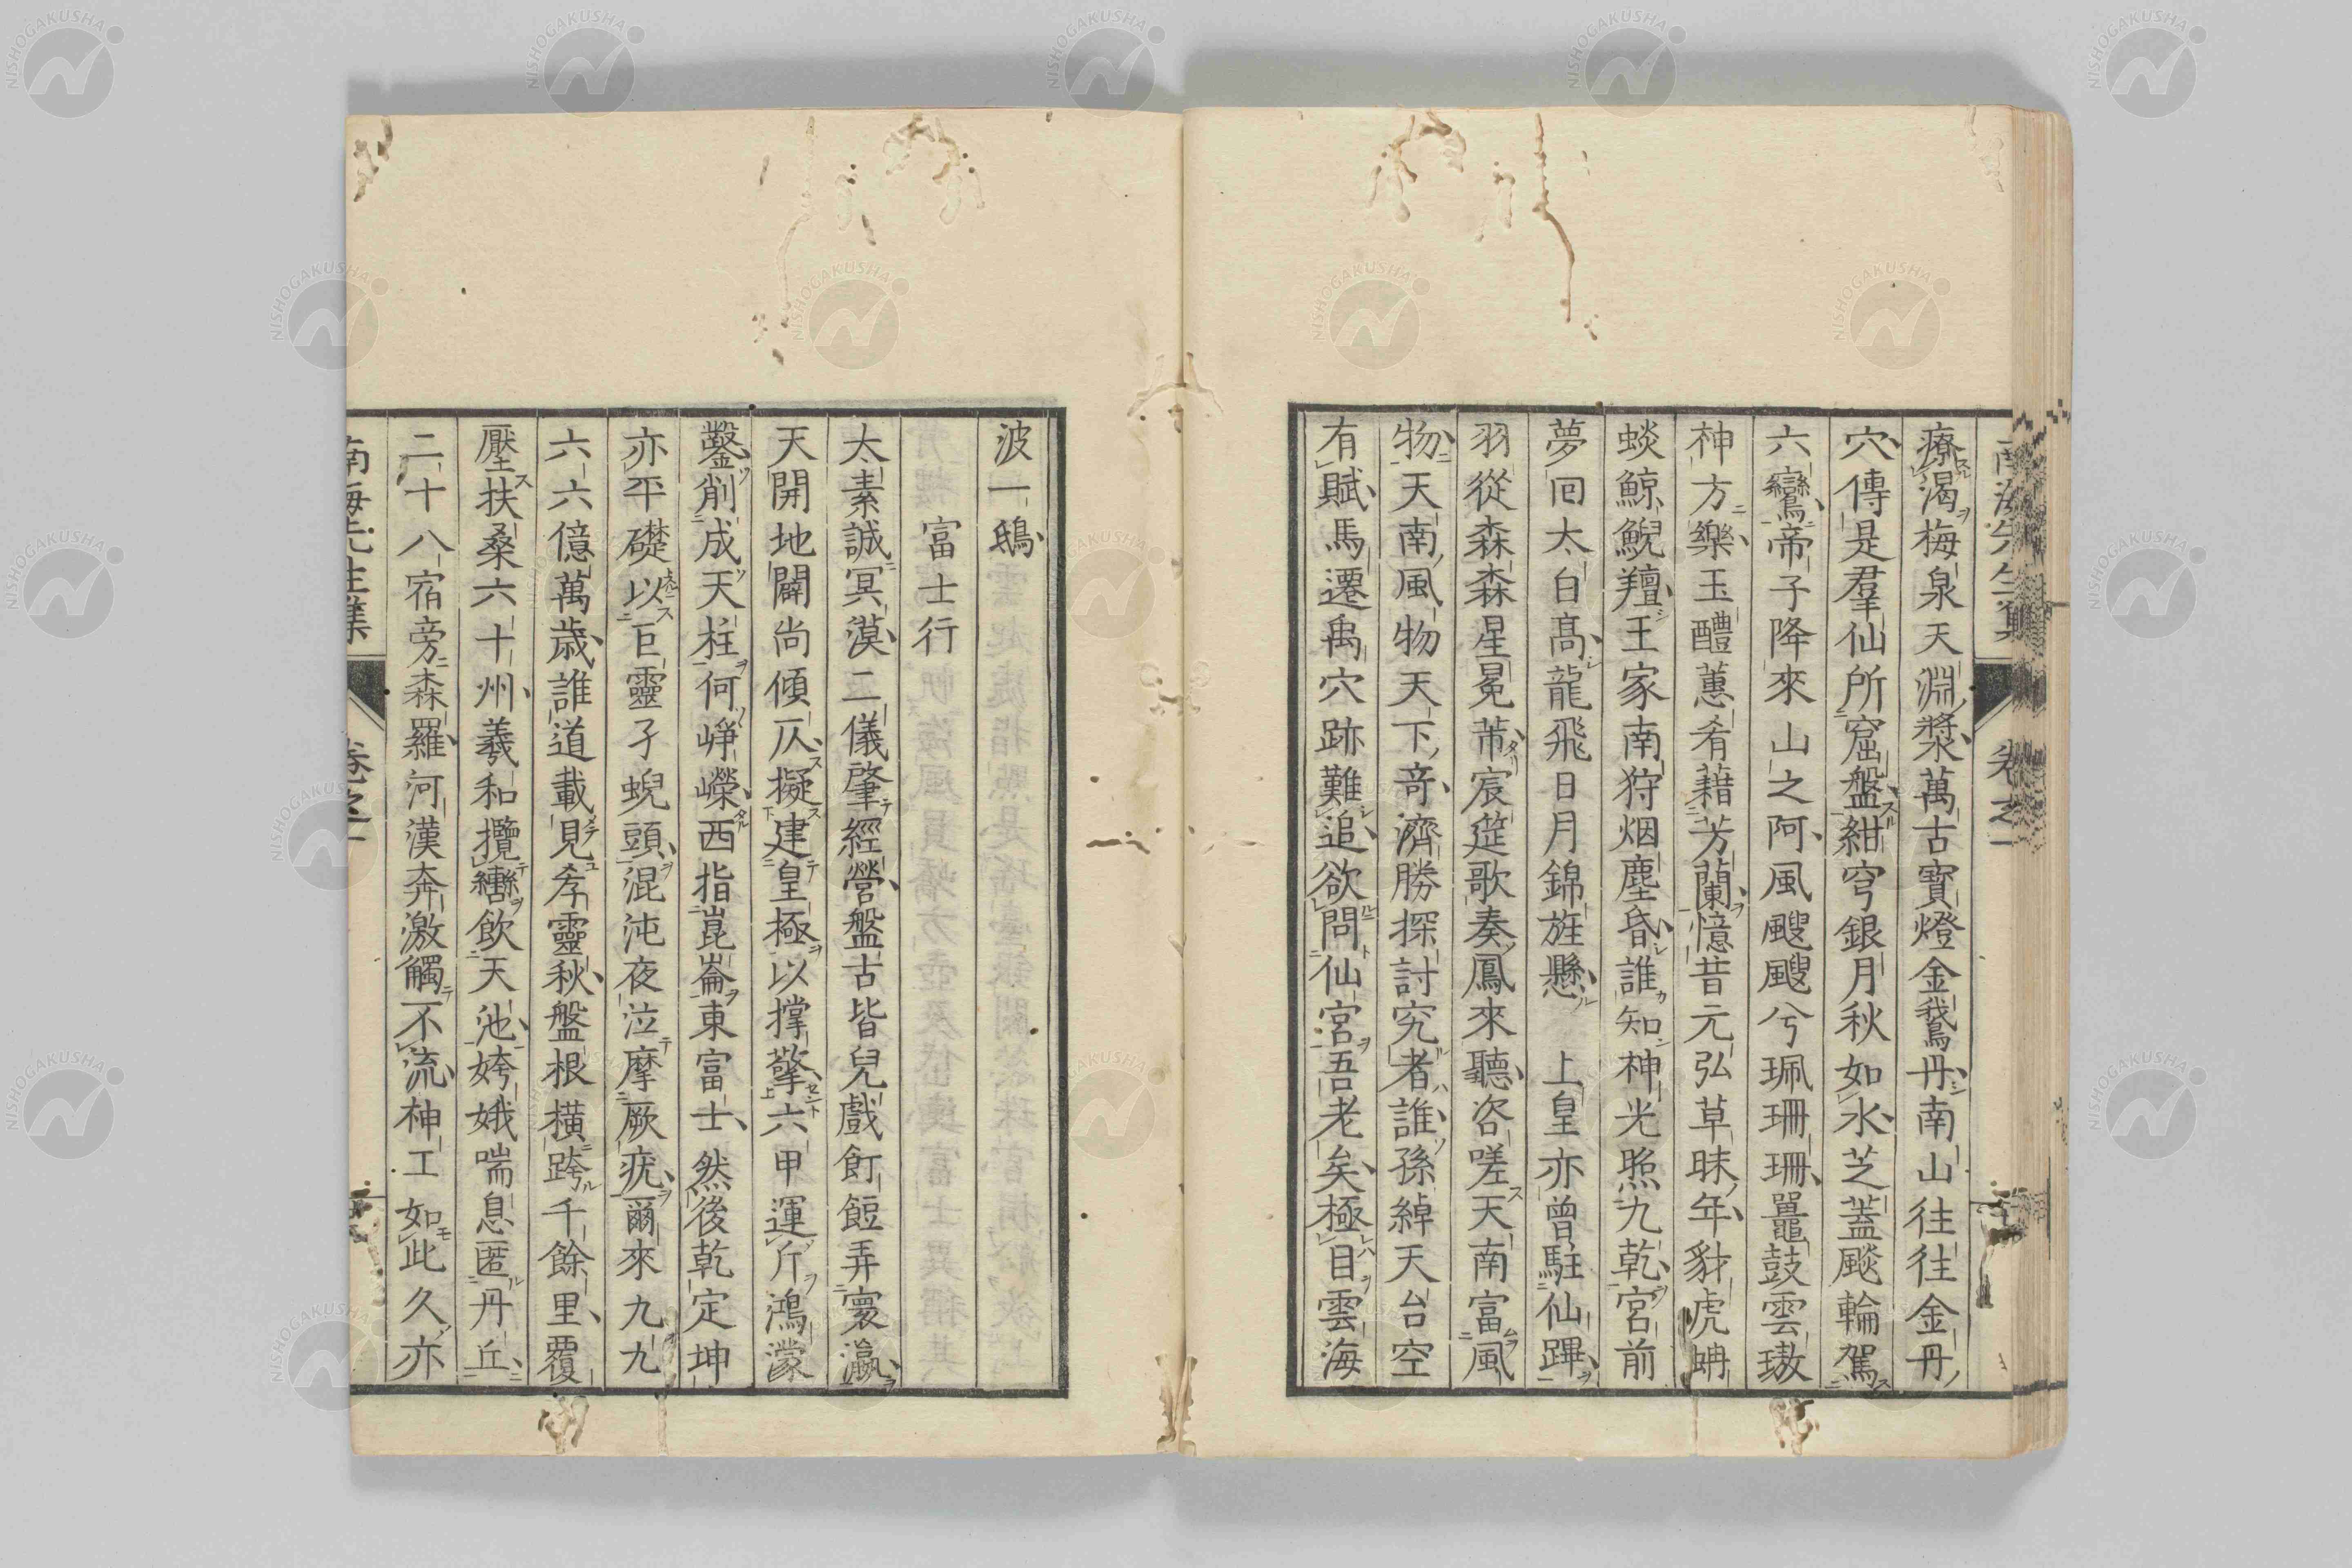 療渴梅泉天淵漿萬古寶燈金鵞丹南山往往金丹
穴傳是羣仙所窟盤紺穹銀月秋如水芝蓋飈輪駕
六鸞帝子降來山之阿風颼颼兮珮珊珊鼉鼓雲璈
神方樂玉醴蕙肴藉芳蘭憶昔元弘草昧年豺虎蚺
蛟鯨鯢羶王家南狩烟塵昏誰知神光照九乾宮前
夢回太白高龍飛日月錦旌懸 上皇亦曾駐仙蹕
羽從森森星冕芾宸筵歌奏鳳來聽咨嗟天南富風
物天南風物天下奇濟勝探討究者誰孫綽天台空
有賦馬遷禹穴跡難追欲問仙宮吾老矣極目雲海
波一鴟
富士行
太素誠冥漠二儀肇經營盤古皆兒戲飣餖弄寰瀛
天開地闢尚傾仄擬建皇極以撐擎六甲運斤鴻濛
鑿削成天柱何崢嶸西指崑崙東富士然後乾定坤
亦平礎以巨靈孑蜺頭混沌夜泣摩厥疣爾來九九
六六億萬歳誰道載見孝靈秋盤根橫跨千餘里覆
壓扶桑六十州羲和攬轡飲天池姱娥喘息匿丹丘
二十八宿旁森羅河漢奔激觸不流神工如此久亦
南海先生集 卷之一
NISHOGAKUSHA